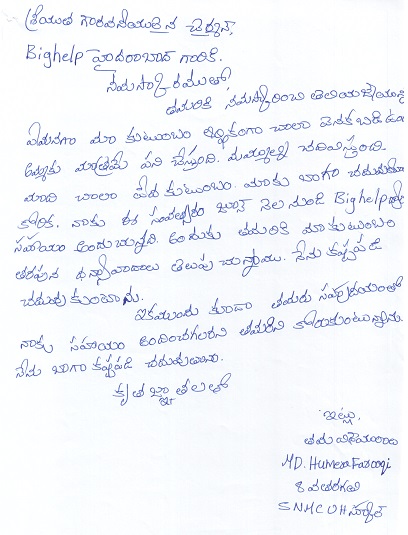 శ్రీయుత గౌరవనీయులైన చైర్మన్,
Bighelp హైదరాబాద్ గారికి.
నమస్కారములతో,
తమరికి నమస్కరించి తెలియజేయున
ఏమనగా మా కుటుంబం ఆర్థికంగా చాలా వెనుకబడి ఉం
అమ్మకు మాత్రమే పని చేస్తుంది. మమ్మల్ని చదివిస్తుంది.
మాది చాలా పేద కుటుంబం. మాకు బాగా చదువుకో
కోరిక. నాకు ఈ సంవత్సరం జూన్ నెల నుండి Bighelp ద్వారా
సహాయం అందుచున్నది. అందుకు తమరికి మా కుటుంబం
తరపున ధన్యవాదాలు తెలుపుచున్నాము. నేను కష్టపడి
చదువుకుంటాను.
ఇకముందు కూడా తమరు సహృదయంతో
నాకు సహాయం అందించగలరని తమరిని కోరుకుంటున్నాను.
నేను బాగా కష్టపడి చదువుతాను.
కృతజ్ఞాతలతో
ఇట్లు,
తమ విధేయురాలు
MD. Humera Farooqi
8 వ తరగతి
SNMCUH స్కూల్